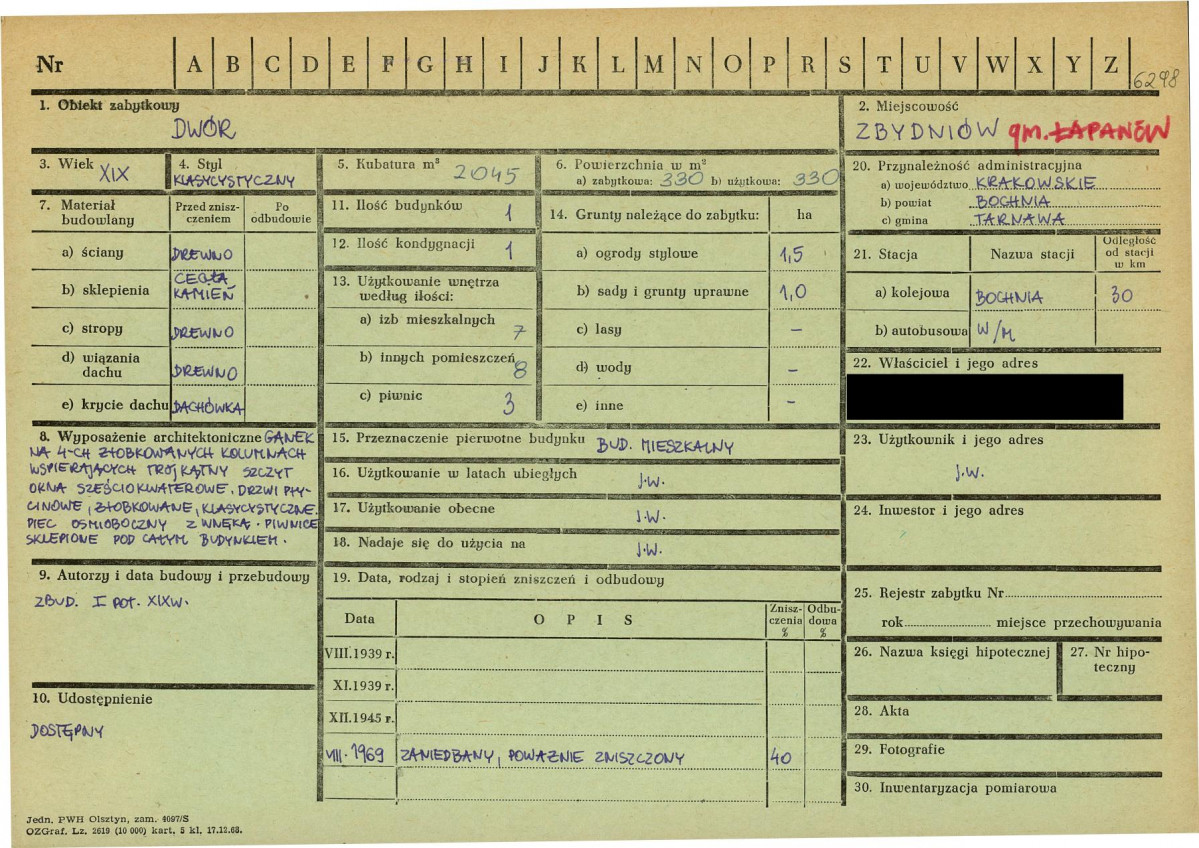 Nr A B C D E F G H I J K L M N O P R S T U V W X Y Z 6298
1. Obiekt zabytkowy
DWÓR
2. Miejscowość
ZBYDNIÓW gm. ŁAPANÓW
3. Wiek XIX
4. Styl
KLASYCYSTYCZNY
5. Kubatura m³ 2045
6. Powierzchnia w m²
a) zabytkowa: 330 b) użytkowa: 330
7. Materiał budowlany
Przed zniszczeniem
Po odbudowie
a) ściany DREWNO
b) sklepienia CEGŁA KAMIEŃ
c) stropy DREWNO
d) wiązania dachu DREWNO
e) krycie dachu DACHÓWKA
8. Wyposażenie architektoniczne GANEK
NA 4-CH ŻŁOBKOWANYCH KOLUMNACH
WSPIERAJĄCYCH TRÓJKĄTNY SZCZYT
OKNA SZEŚCIOKWATEROWE. DRZWI PŁY-
CINOWE, ŻŁOBKOWANE, KLASYCYSTYCZNE.
PIEC OŚMIOBOCZNY Z WNĘKĄ. PIWNICE
SKLEPIONE POD CAŁYM BUDYNKIEM.
9. Autorzy i data budowy i przebudowy
ZBUD. I POŁ. XIX W.
10. Udostępnienie
DOSTĘPNY
11. Ilość budynków 1
12. Ilość kondygnacji 1
13. Użytkowanie wnętrza
według ilości:
a) izb mieszkalnych 7
b) innych pomieszczeń 8
c) piwnic 3
14. Grunty należące do zabytku: ha
a) ogrody stylowe 1,5
b) sady i grunty uprawne 1,0
c) lasy –
d) wody –
e) inne –
15. Przeznaczenie pierwotne budynku BUD. MIESZKALNY
16. Użytkowanie w latach ubiegłych J.W.
17. Użytkowanie obecne J.W.
18. Nadaje się do użycia na J.W.
19. Data, rodzaj i stopień zniszczeń i odbudowy
Data OPIS Zniszczenia % Odbudowa %
VIII.1939 r.
XI.1939 r.
XII.1945 r.
VIII.1969 ZANIEDBANY, POWAŻNIE ZNISZCZONY 40
20. Przynależność administracyjna
a) województwo KRAKOWSKIE
b) powiat BOCHNIA
c) gmina TARNAWA
21. Stacja Nazwa stacji Odległość od stacji w km
a) kolejowa BOCHNIA 30
b) autobusowa W/M
22. Właściciel i jego adres
23. Użytkownik i jego adres
J.W.
24. Inwestor i jego adres
25. Rejestr zabytku Nr
rok miejsce przechowywania
26. Nazwa księgi hipotecznej
27. Nr hipoteczny
28. Akta
29. Fotografie
30. Inwentaryzacja pomiarowa
Jedn. PWH Olsztyn, zam. 4097/S
OZGraf. Lz. 2619 (10 000) kart. 5 kl. 17.12.68.